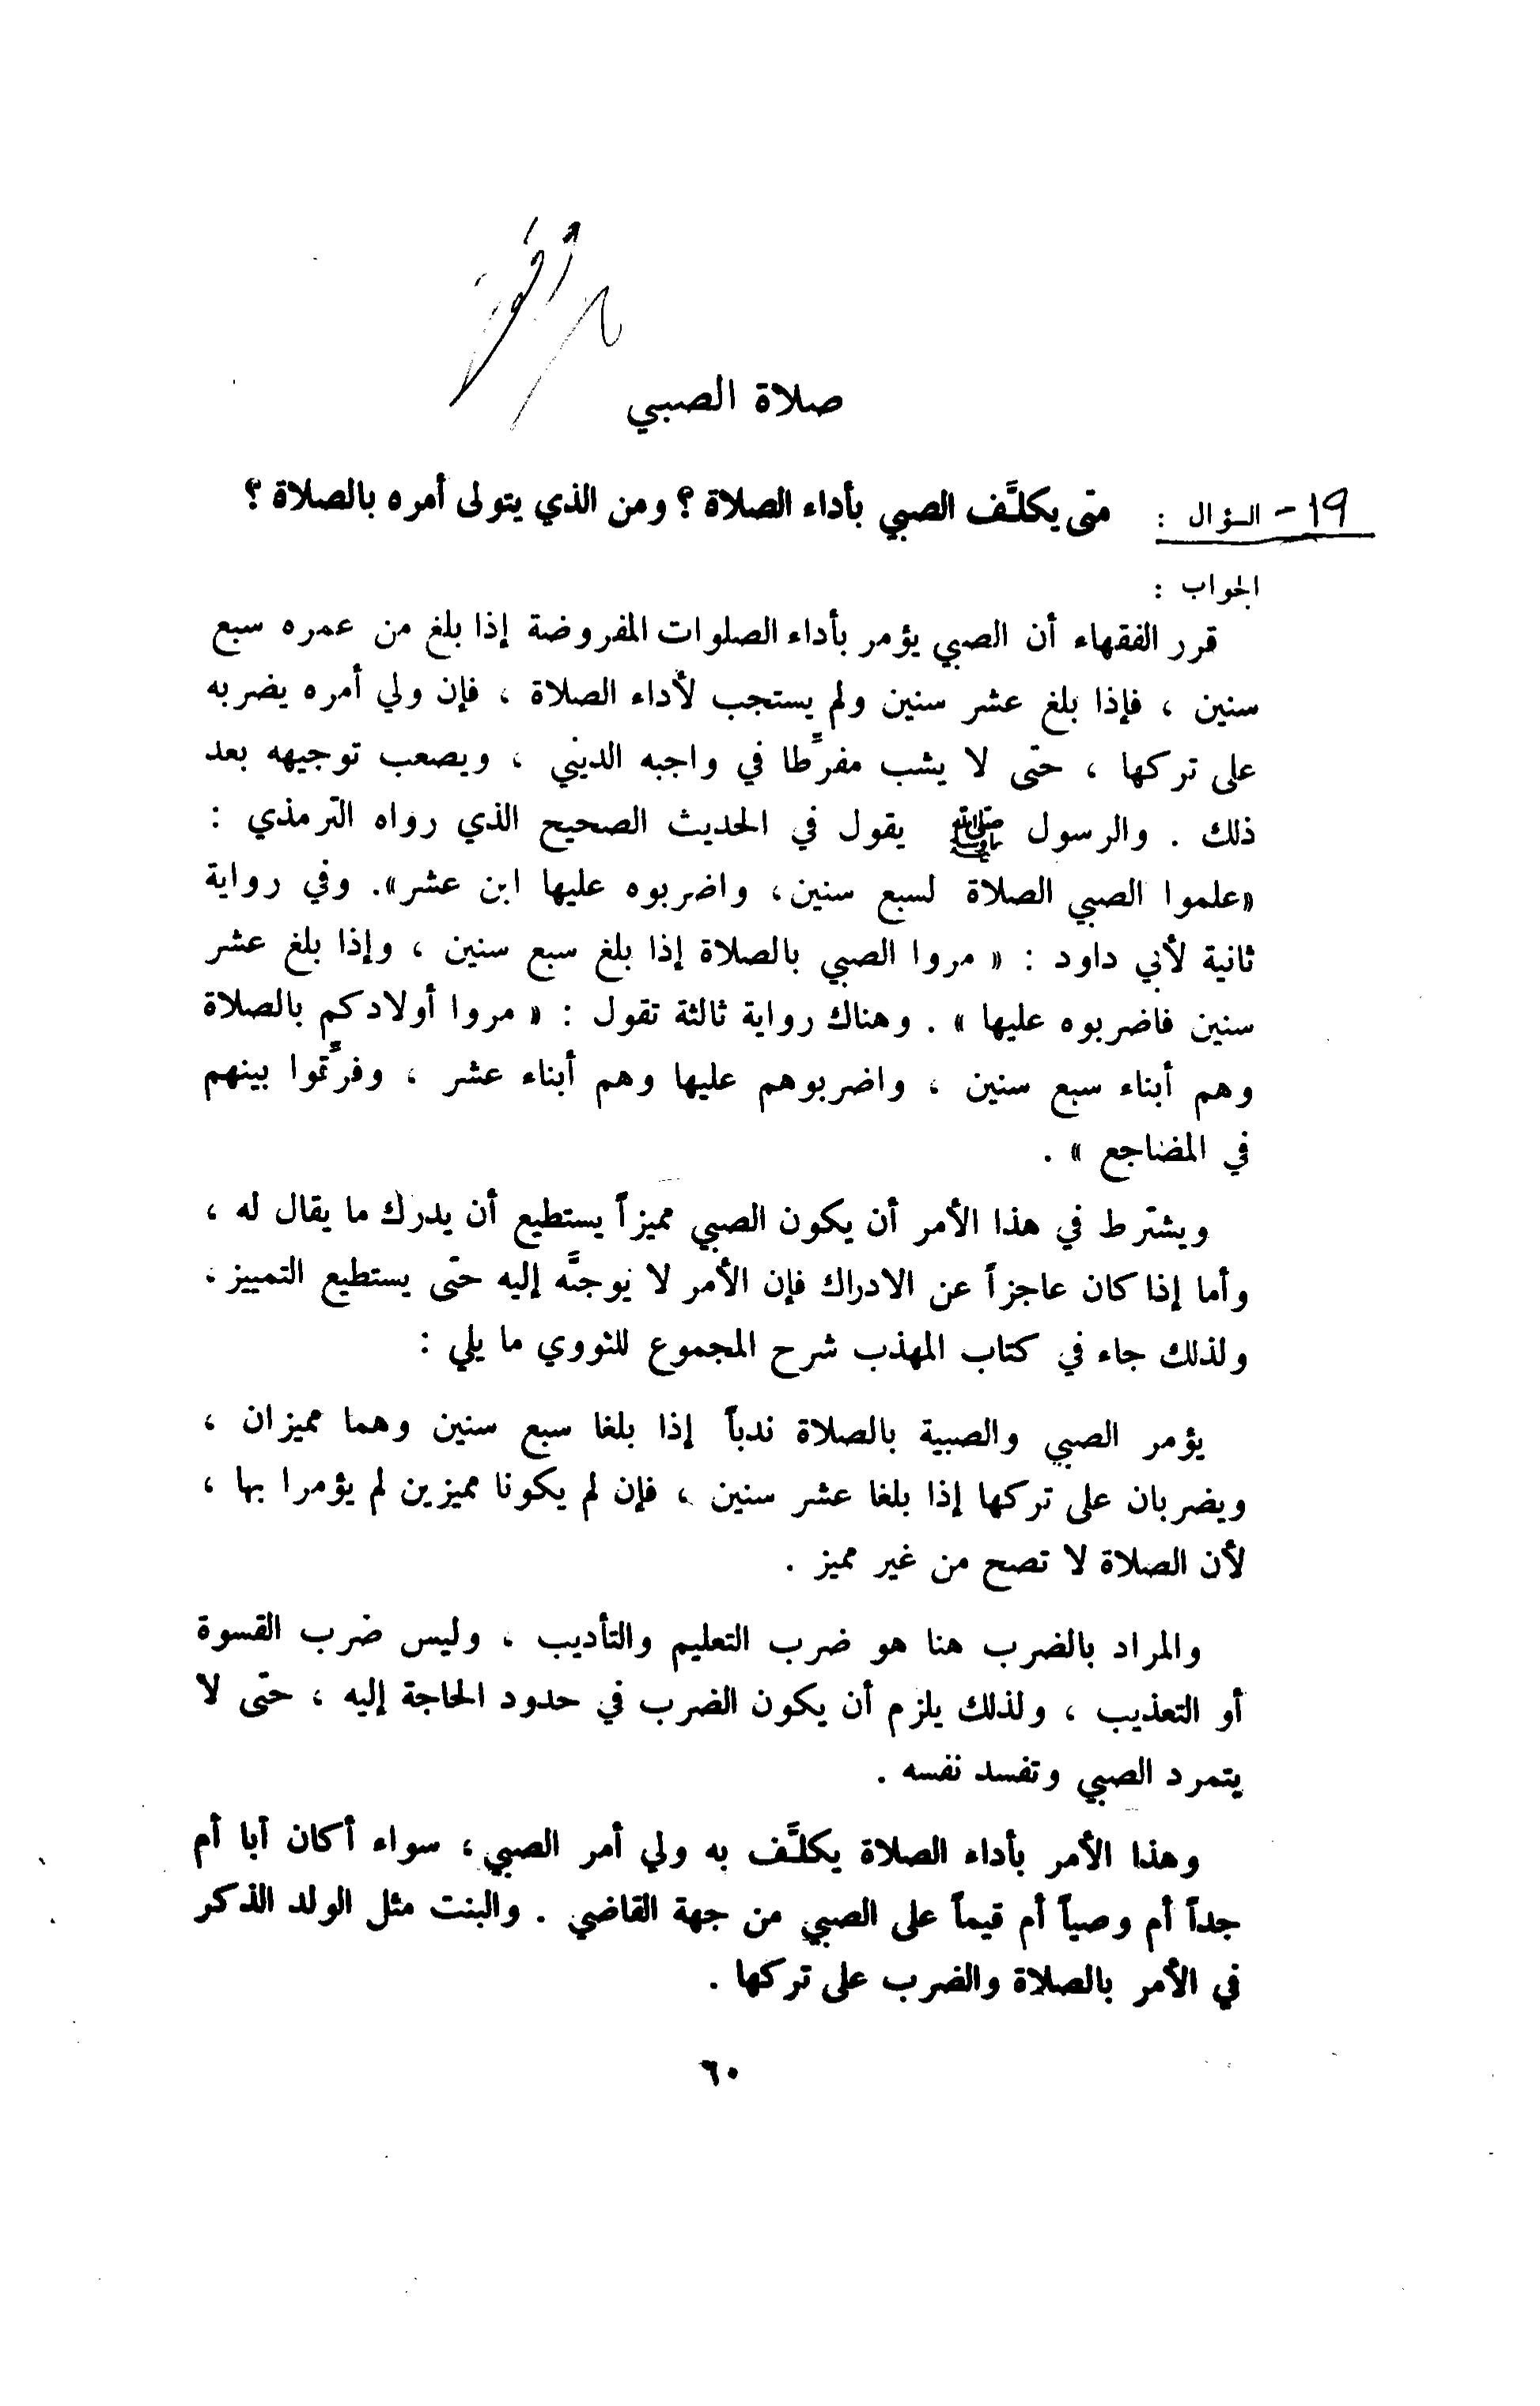 صلاة الصبي
١٩- السؤال : متى يكلَّف الصبي بأداء الصلاة ؟ ومن الذي يتولى أمره بالصلاة ؟
الجواب :
قرر الفقهاء أن الصبي يؤمر بأداء الصلوات المفروضة إذا بلغ من عمره سبع
سنين ، فإذا بلغ عشر سنين ولم يستجب لأداء الصلاة ، فإن ولي أمره يضربه
على تركها ، حتى لا يشب مفرِّطا في واجبه الديني ، ويصعب توجيهه بعد
ذلك . والرسول ﷺ يقول في الحديث الصحيح الذي رواه الترمذي :
«علموا الصبي الصلاة لسبع سنين، واضربوه عليها ابن عشر». وفي رواية
ثانية لأبي داود : « مروا الصبي بالصلاة إذا بلغ سبع سنين ، وإذا بلغ عشر
سنين فاضربوه عليها » . وهناك رواية ثالثة تقول : « مروا أولادكم بالصلاة
وهم أبناء سبع سنين ، واضربوهم عليها وهم أبناء عشر ، وفرِّقوا بينهم
في المضاجع » .
ويشترط في هذا الأمر أن يكون الصبي مميزاً يستطيع أن يدرك ما يقال له ،
وأما إذا كان عاجزاً عن الادراك فإن الأمر لا يوجَّه إليه حتى يستطيع التمييز .
ولذلك جاء في كتاب المهذب شرح المجموع للنووي ما يلي :
يؤمر الصبي والصبية بالصلاة ندباً إذا بلغا سبع سنين وهما مميزان ،
ويضربان على تركها إذا بلغا عشر سنين ، فإن لم يكونا مميزين لم يؤمرا بها ،
لأن الصلاة لا تصح من غير مميز .
والمراد بالضرب هنا هو ضرب التعليم والتأديب ، وليس ضرب القسوة
أو التعذيب ، ولذلك يلزم أن يكون الضرب في حدود الحاجة إليه ، حتى لا
يتمرد الصبي وتفسد نفسه .
وهذا الأمر بأداء الصلاة يكلَّف به ولي أمر الصبي ، سواء أكان أبا أم
جداً أم وصياً أم قيماً على الصبي من جهة القاضي . والبنت مثل الولد الذكر
في الأمر بالصلاة والضرب على تركها .
٦٠